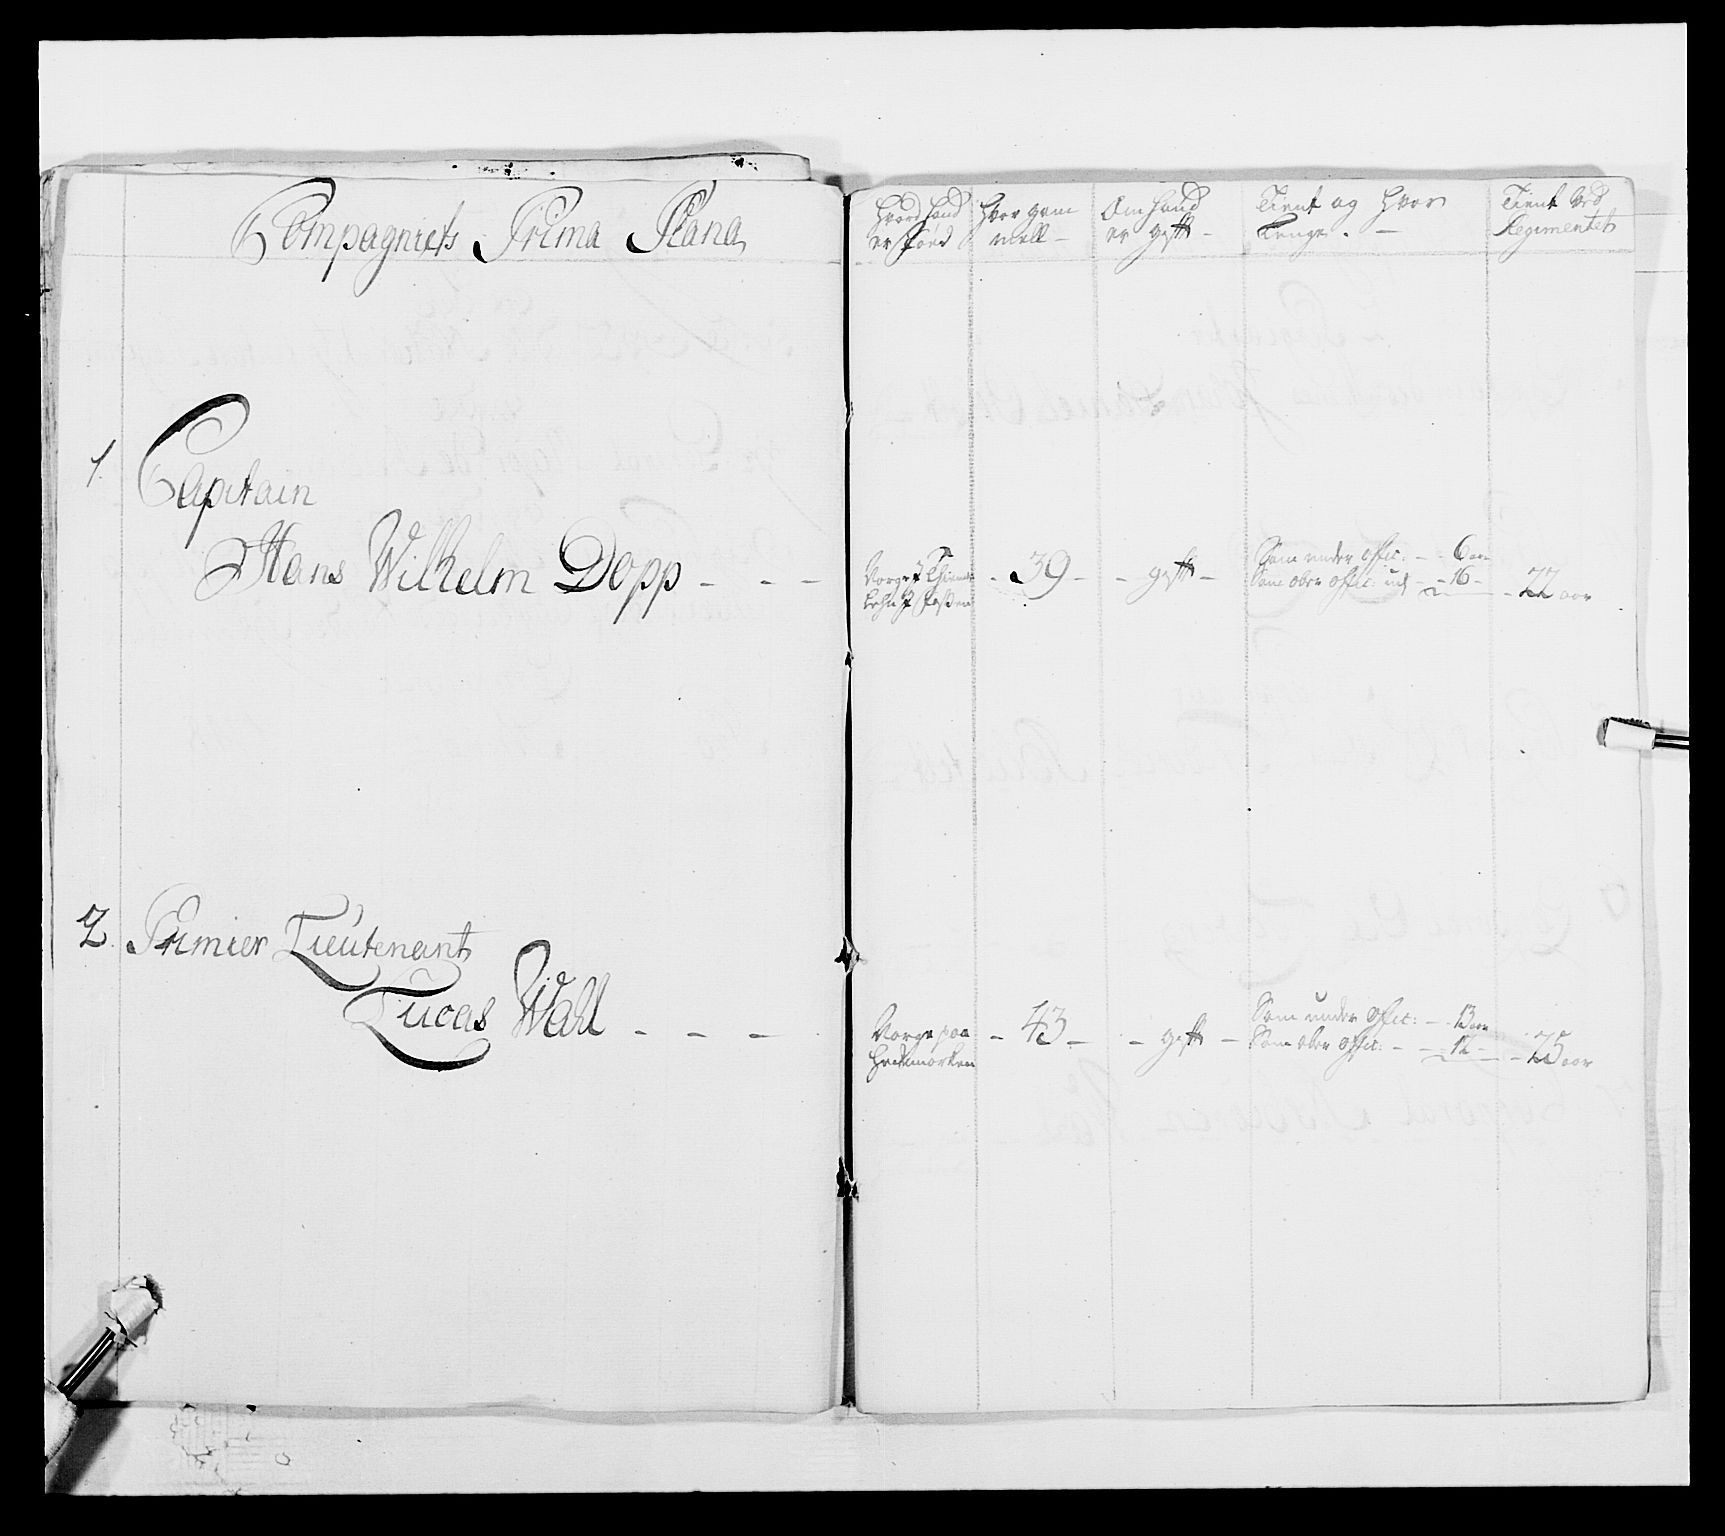 Compagniets Prima Plana
1.
Capitain
Hans Wilhelm Dopp - - -
2. Premier Lieutenant
Lucas Wall - - -
Hvor hand
er føed
Hvor gam
mell -
Om hand
er gift -
Tient og Hvor
Lenge. -
Tient ved
Regimentet
Norge
- 39 -
- gift -
Som under offic: - - 6 aar
Som ober offic: - 16 -
- 22 aar
Norge paa
Hedemarken
- 43 -
- gift -
Som under offic: - 13 aar
Som ober offic: - - 12 -
- 25 aar